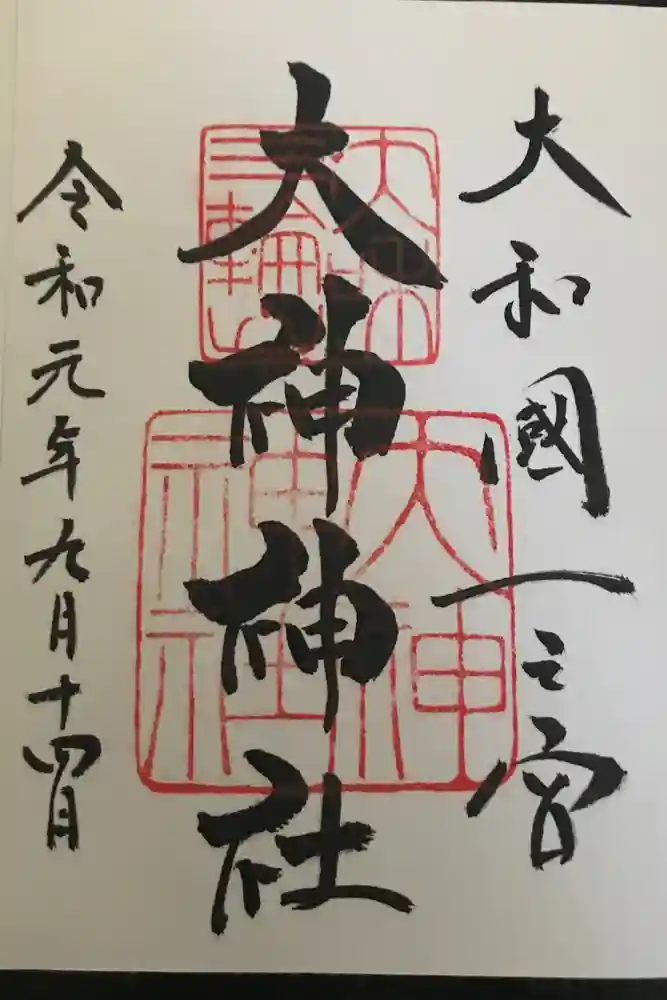 大和國一之宮
大神神社
令和元年九月十四日
大神神社